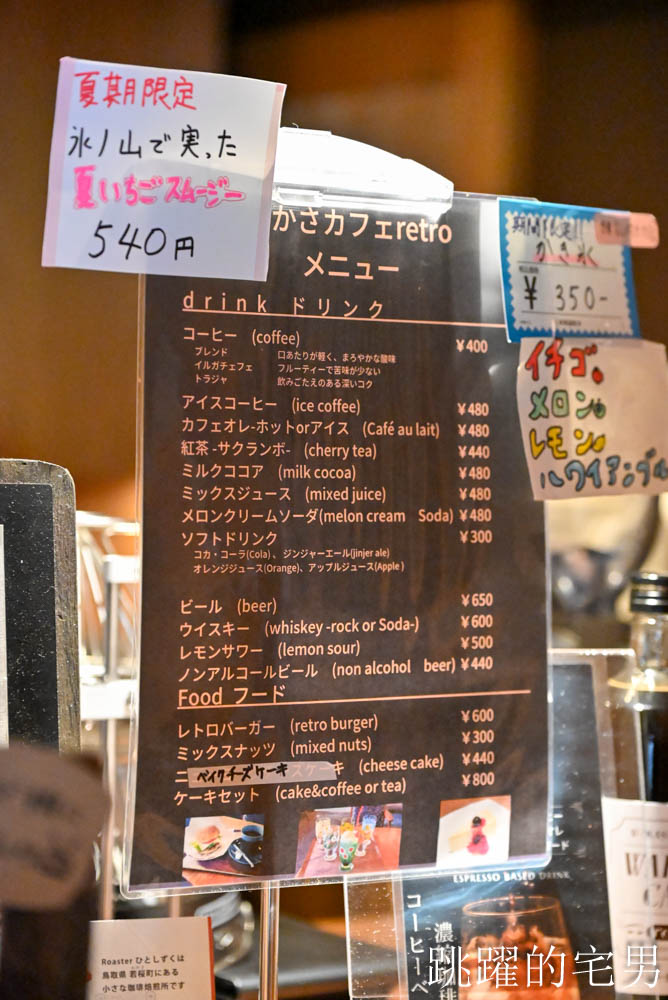 夏期限定
氷ノ山で実った
夏いちごスムージー
540円
かさカフェretro
メニュー
drink ドリンク
コーヒー (coffee) ¥400
ブレンド 口あたりが軽く、まろやかな酸味
イルガチェフェ フルーティーで苦味が少ない
トラジャ 飲みごたえのある深いコク
アイスコーヒー (ice coffee) ¥480
カフェオレ-ホットorアイス (Café au lait) ¥480
紅茶 -サクランボ- (cherry tea) ¥440
ミルクココア (milk cocoa) ¥480
ミックスジュース (mixed juice) ¥480
メロンクリームソーダ(melon cream Soda) ¥480
ソフトドリンク ¥300
コカ・コーラ(Cola)、ジンジャーエール(jinjer ale)
オレンジジュース(Orange)、アップルジュース(Apple)
ビール (beer) ¥650
ウイスキー (whiskey -rock or Soda-) ¥600
レモンサワー (lemon sour) ¥500
ノンアルコールビール (non alcohol beer) ¥440
Food フード
レトロバーガー (retro burger) ¥600
ミックスナッツ (mixed nuts) ¥300
ベイクチーズケーキ (cheese cake) ¥440
ケーキセット (cake&coffee or tea) ¥800
期間限定!!
かき氷
¥350-
イチゴ
メロン
レモン
ハワイアンブル
ESPRESSO BASED DRINK
コーヒーベ
濃
珈琲
Roaster ひとしずくは
鳥取県 若桜町にある
小さな珈琲焙煎所です
跳躍的宅男